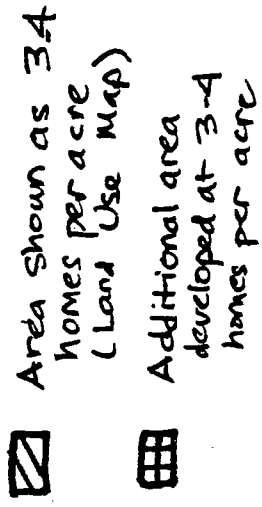 Area shown as 3-4
homes per acre
(Land Use Map)
Additional area
developed at 3-4
homes per acre